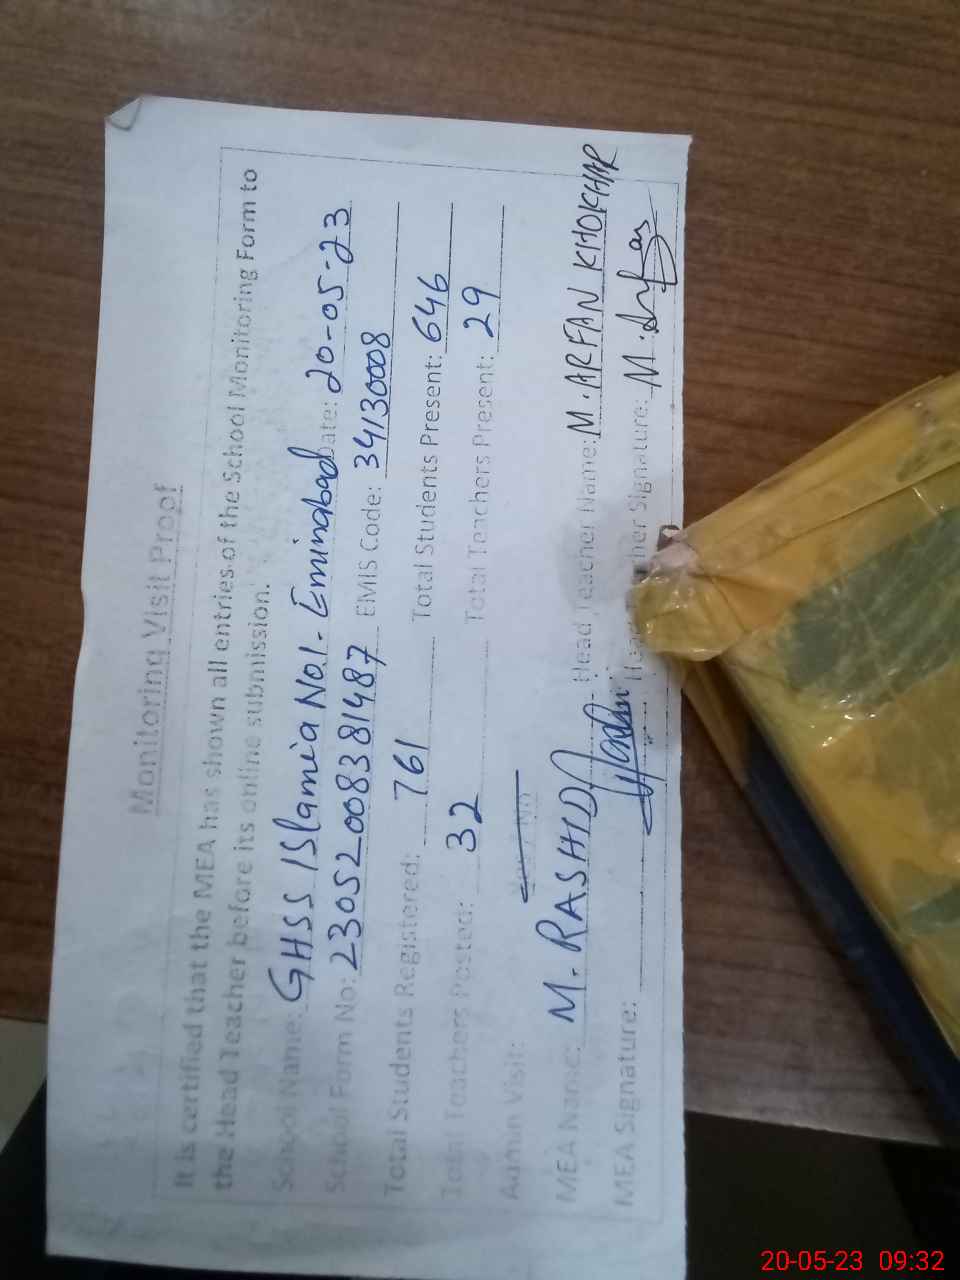 Monitoring Visit Proof
It is certified that the MEA has shown all entries of the School Monitoring Form to
the Head Teacher before its online submission.
School Name: GHSS ISlamia No.1. Eminabad Date: 20-05-23
School Form No: 23052008381487 EMIS Code: 34130008
Total Students Registered: 761 Total Students Present: 646
Total Teachers Posted: 32 Total Teachers Present: 29
Admin Visit: Yes / No
MEA Name: M. RASHID Head Teacher Name: M. ARFAN KHOKHAR
MEA Signature: Head Teacher Signature: M. Arfan
20-05-23 09:32